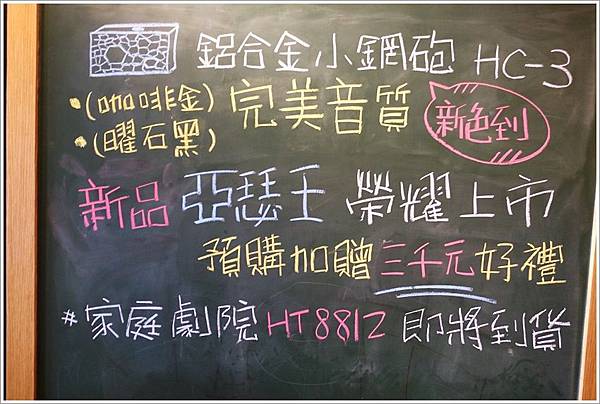 鋁合金小鋼砲 HC-3
•(咖啡金) 完美音質 新色到
•(曜石黑)
新品 亞瑟王 榮耀上市
預購加贈三千元好禮
#家庭劇院HT8812 即將到貨